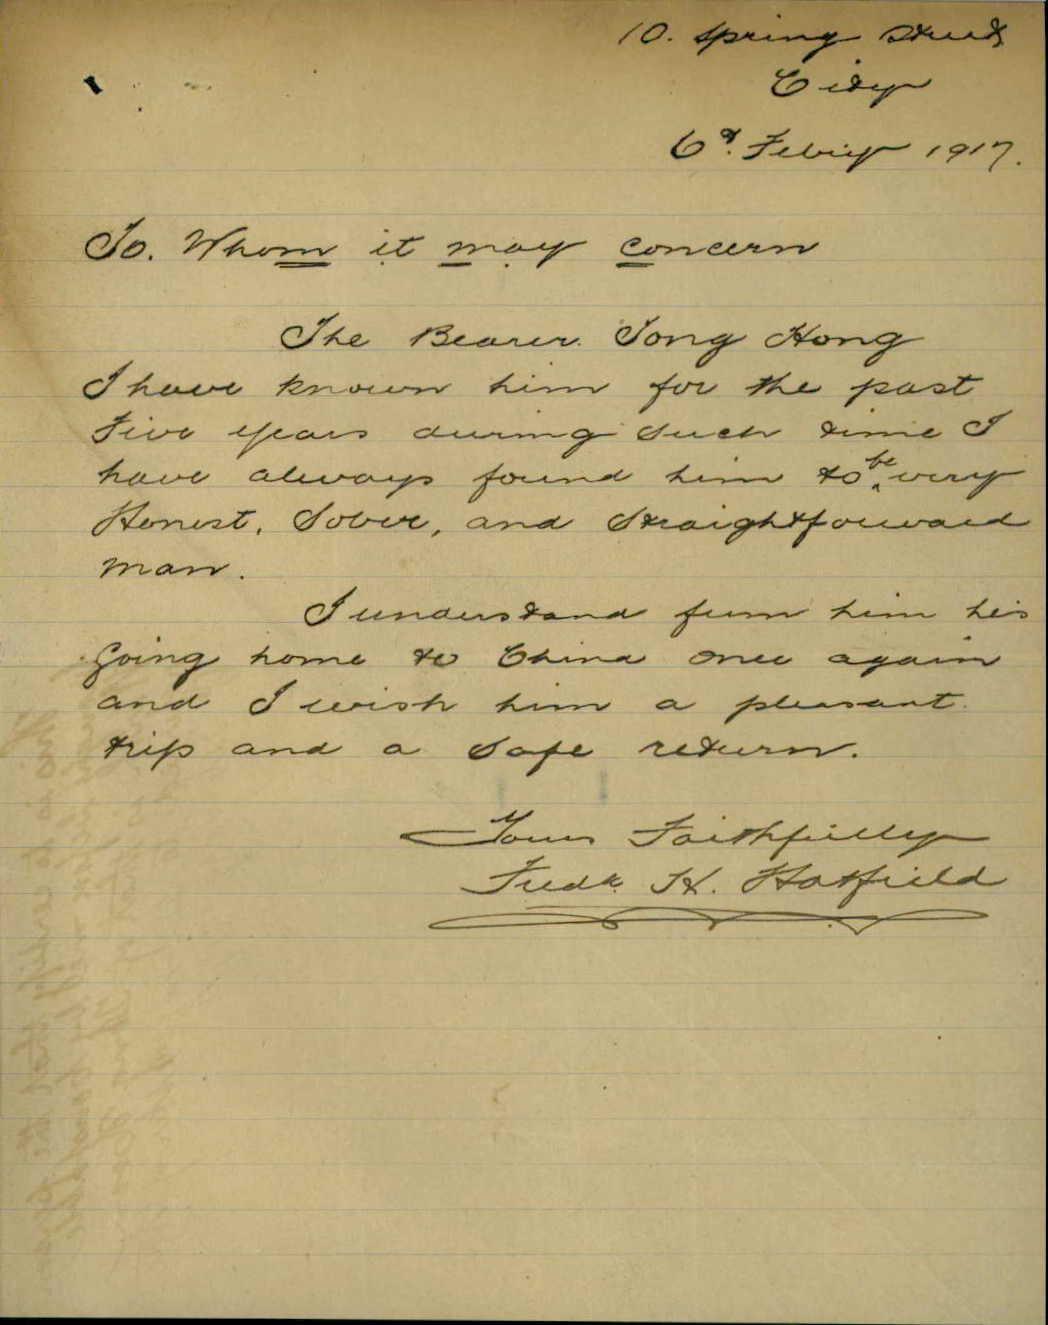 10. Spring Street
City
6th Febuy 1917.
To. Whom it may concern
The Bearer. Song Hong
I have known him for the past
Five years during such time I
have always found him to be very
Honest, Sober, and Straightforward
man.
I understand from him his
going home to China once again
and I wish him a pleasant
trip and a safe return.
Yours Faithfully
Fredk. H. Hatfield